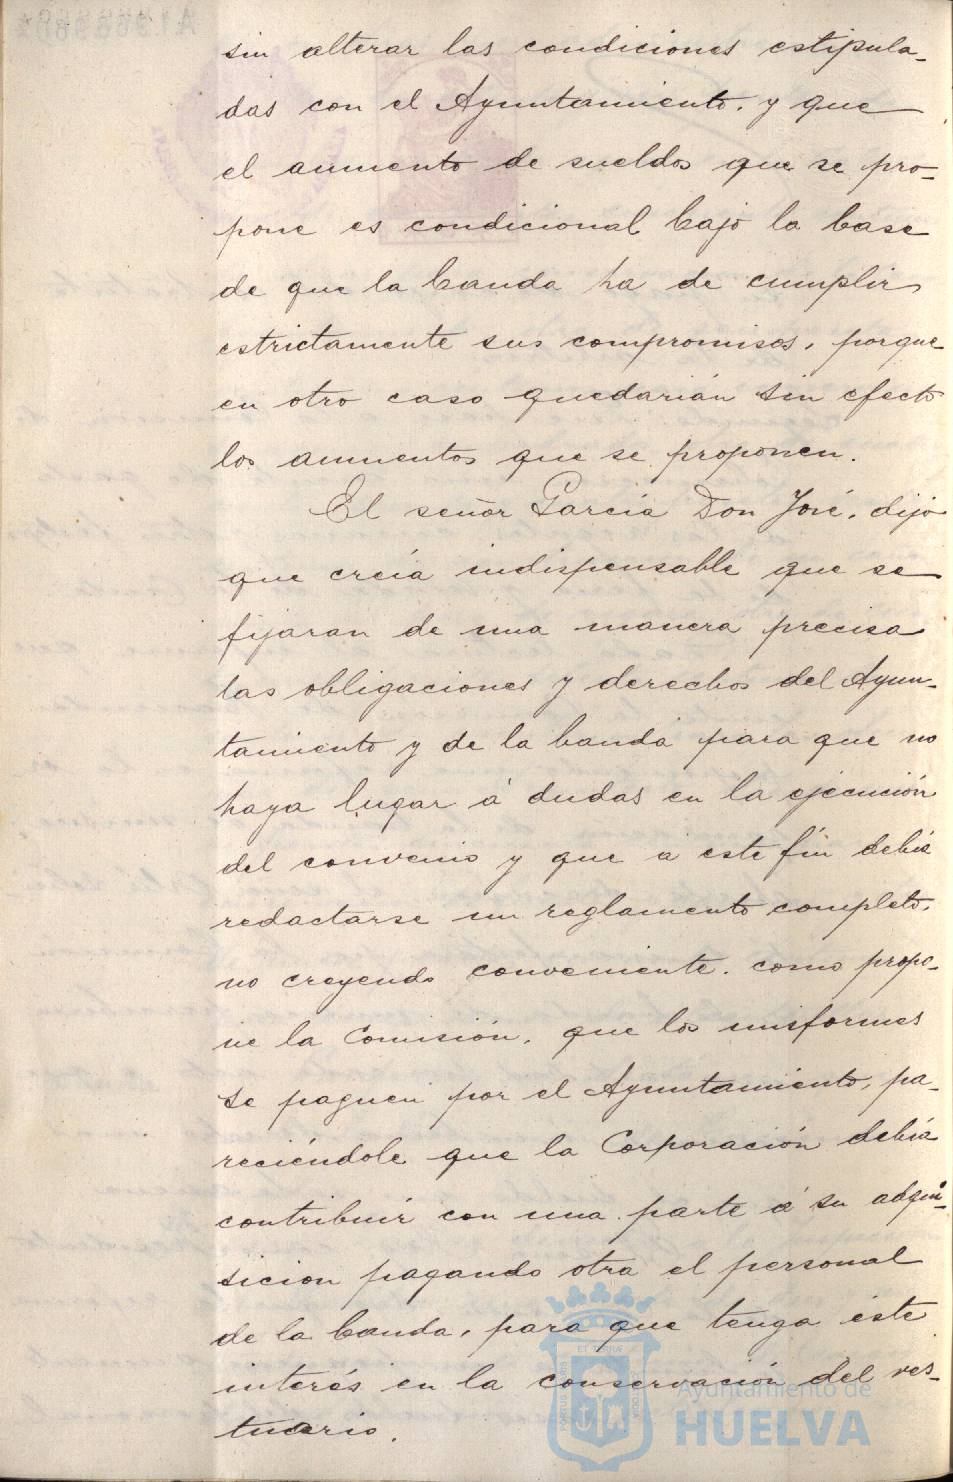 sin alterar las condiciones estipula-
das con el Ayuntamiento, y que
el aumento de sueldos que se pro-
pone es condicional bajo la base
de que la banda ha de cumplir
estrictamente sus compromisos, porque
en otro caso quedarián sin efecto
los aumentos que se proponen.
El señor García Don José, dijo
que creía indispensable que se
fijaran de una manera precisa
las obligaciones y derechos del Ayun-
tamiento y de la banda para que no
haya lugar á dudas en la ejecución
del convenio y que á este fin debía
redactarse un reglamento completo,
no creyendo conveniente, como propo-
ne la Comisión, que los uniformes
se paguen por el Ayuntamiento, pa-
reciéndole que la Corporación debía
contribuir con una parte á su adqui-
sición pagando otra el personal
de la banda, para que tenga éste
interés en la conservación del ves-
tuario.
Ayuntamiento de
HUELVA